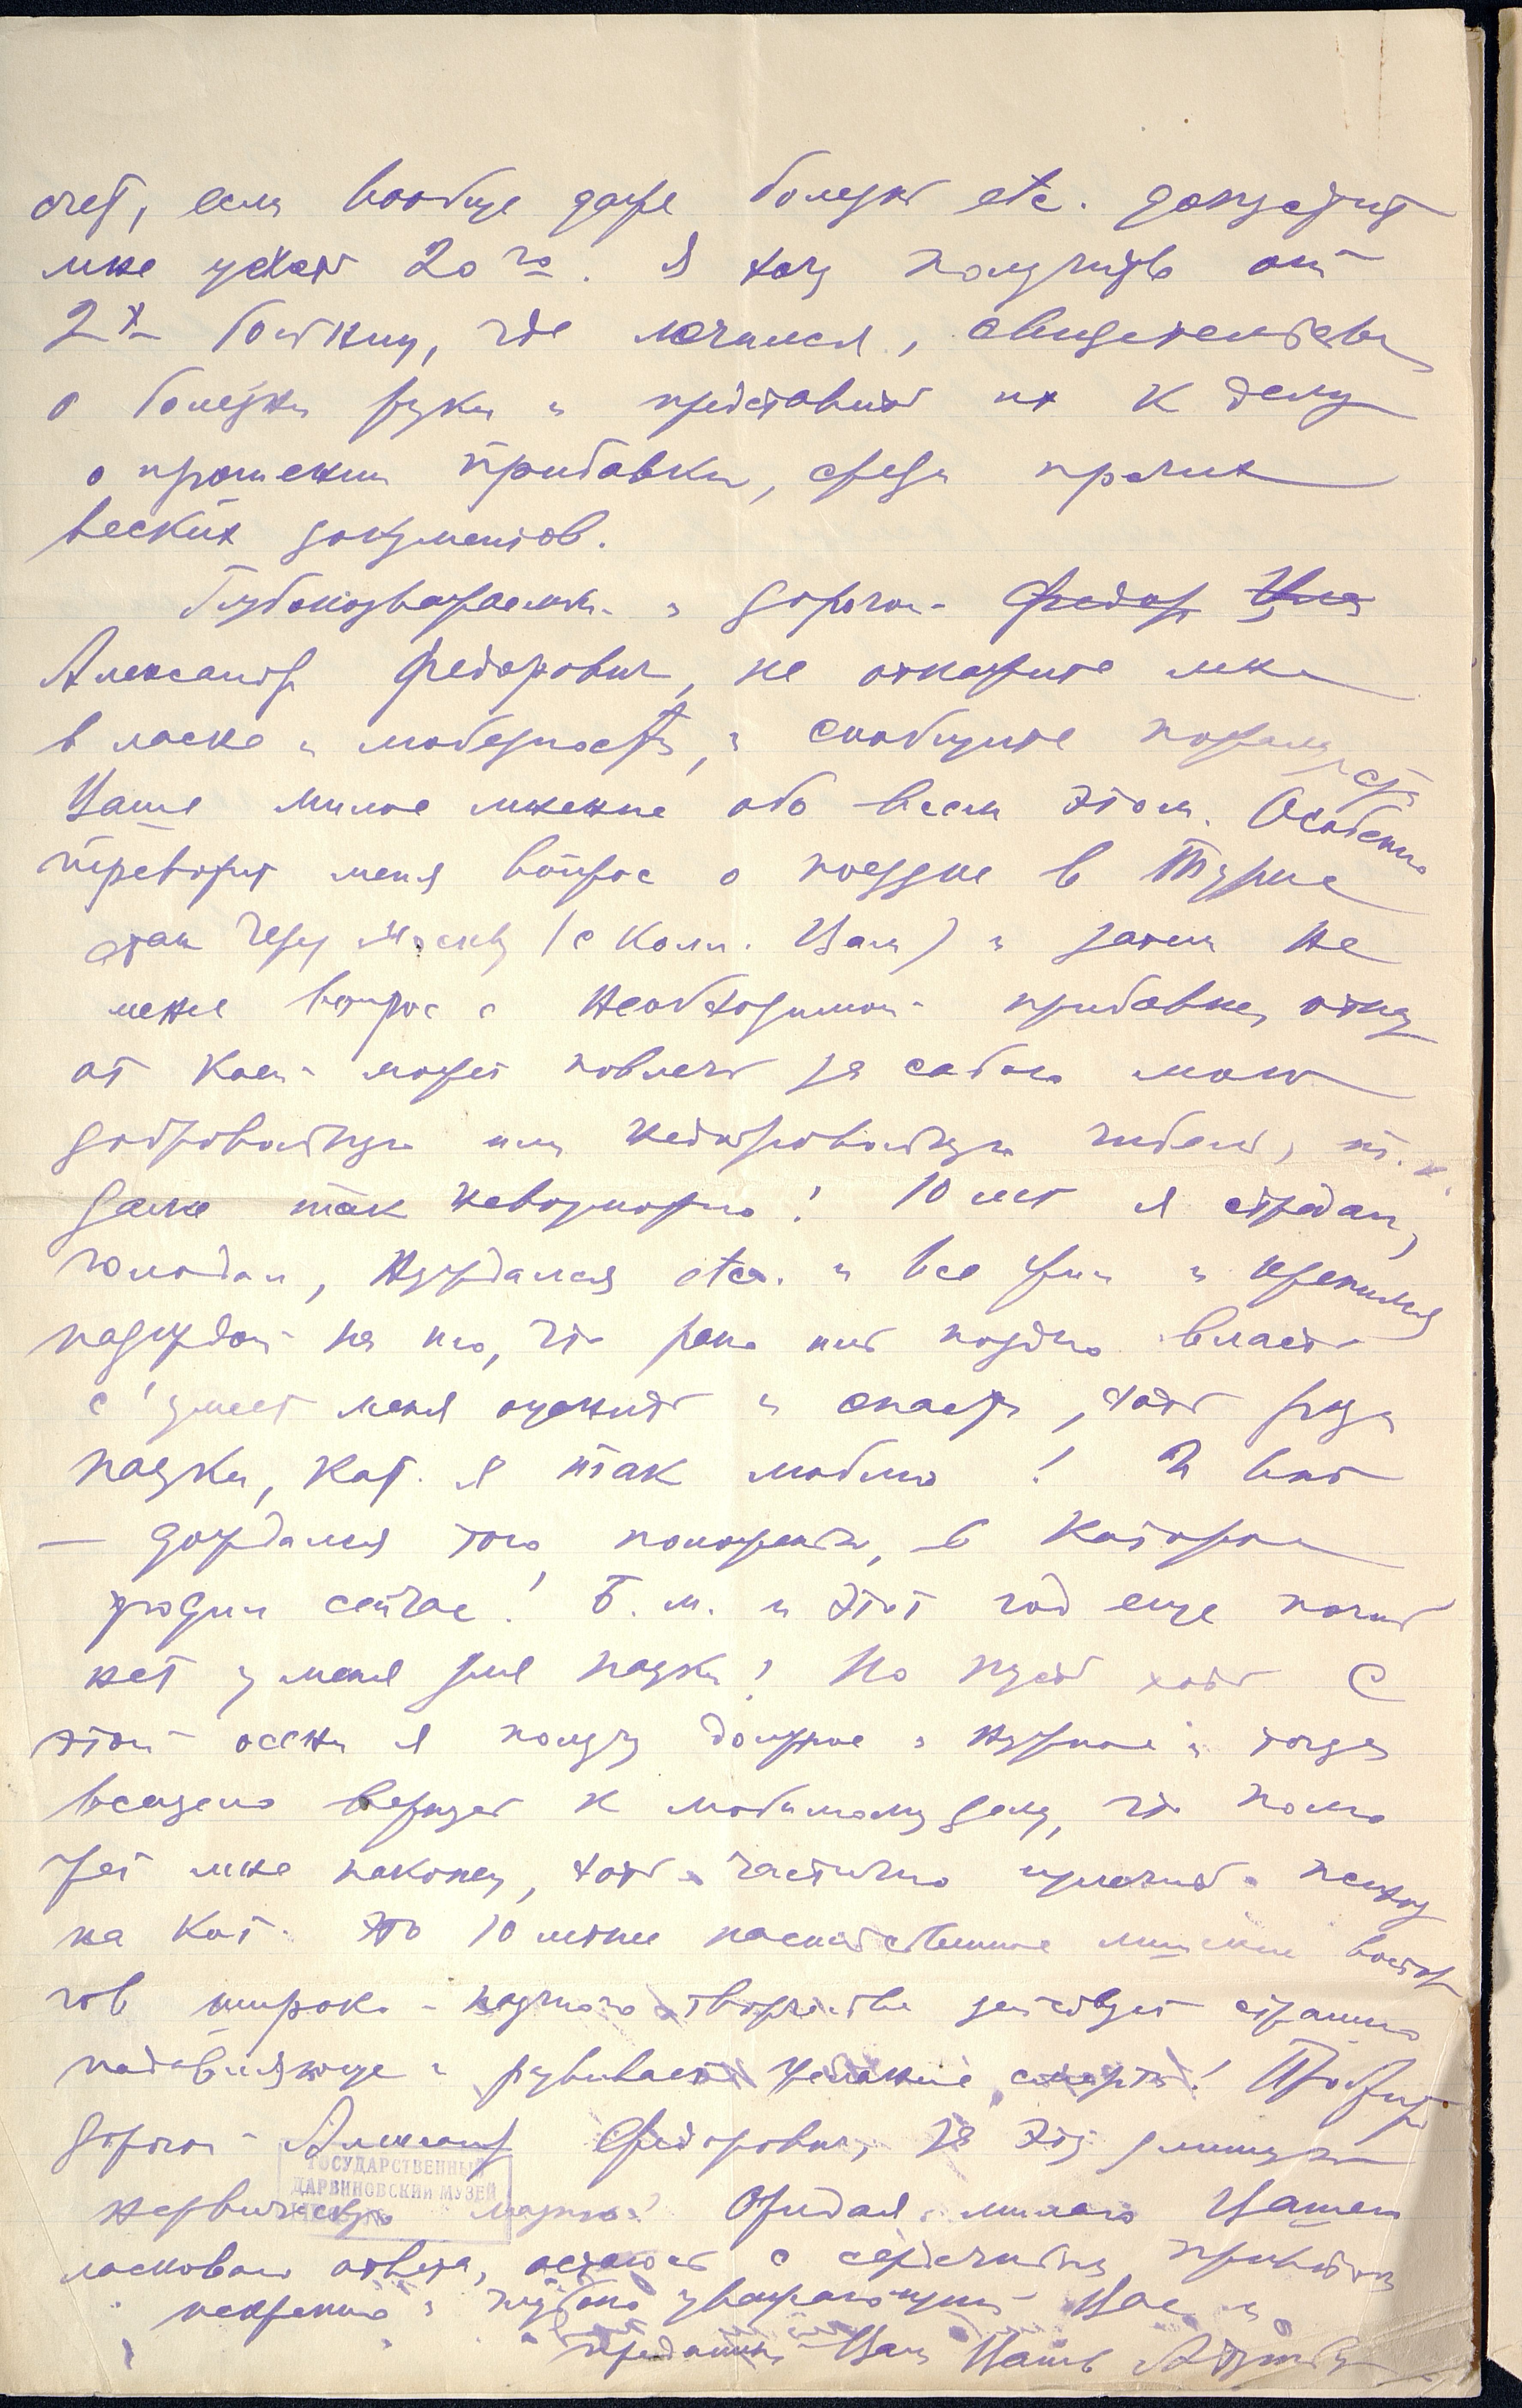 счет, если вообще даже болезнь etc. допустит
мне уехать 20го. Я хочу получить от
2х больниц, где лечился, свидетельства
о болезни руки и представить их к делу
о прошении прибавки, среди прочих
веских документов.
Глубокоуважаемый и дорогой Федор
Александр Федорович, не откажите мне
в ласке и любезности, и сообщите пожалуйста
Ваше милое мнение обо всем этом. Особенно
тревожит меня вопрос о поездке в
через Москву (с колл. Вам) и затем не
менее вопрос о необходимой прибавке, отказ
от коей может повлечь за собою мою
добровольную или недобровольную гибель, т.к.
далее так невозможно! 10 лет я страдал,
голодал, нуждался etc. и все жил и крепился
надеждой на то, что рано или поздно власть
с'умеет меня оценить и спасти, хотя ради
науки, кот. я так люблю! И вот
— дождался того положения, в котором
сейчас! Б.м. и этот год еще погиб
нет у меня для науки! Но пусть хоть с
этой осени я получу должное и нужное и тогда
всецело вернусь к любимому делу, что помо
жет мне наконец, хоть частично излечить психоз
на кот. это 10 летнее насильственное лишение восторгов
гов широко-научного творчества действует страшно
подавляюще и развивает желание смерти! Простите
дорогой Александр Федорович, за эту длинную
нервическую Ожидая милого Вашего
ласкового ответа, остаюсь с сердечным приветом
искренно и глубоко уважающий Вас и
преданный Вам Ваш
ГОСУДАРСТВЕННЫЙ
ДАРВИНОВСКИЙ МУЗЕЙ